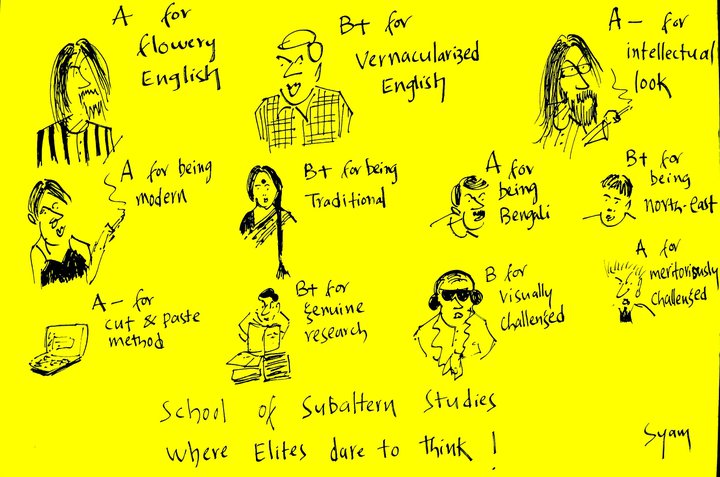 A for
flowery
English
B+ for
Vernacularized
English
A- for
intellectual
look
A for being
modern
B+ for being
Traditional
A for
being
Bengali
B+ for
being
north-east
A- for
cut & paste
method
B+ for
genuine
research
B for
visually
challenged
A for
meritoriously
challenged
School of Subaltern Studies
where Elites dare to think!
Syam